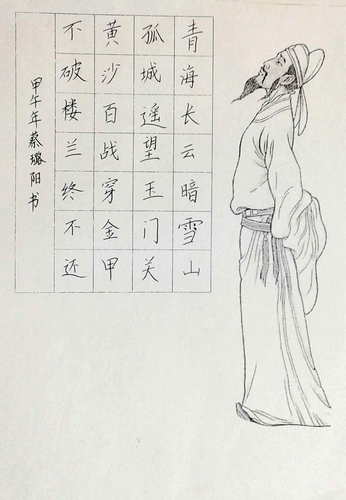 青海长云暗雪山
孤城遥望玉门关
黄沙百战穿金甲
不破楼兰终不还
甲午年蔡璐阳书